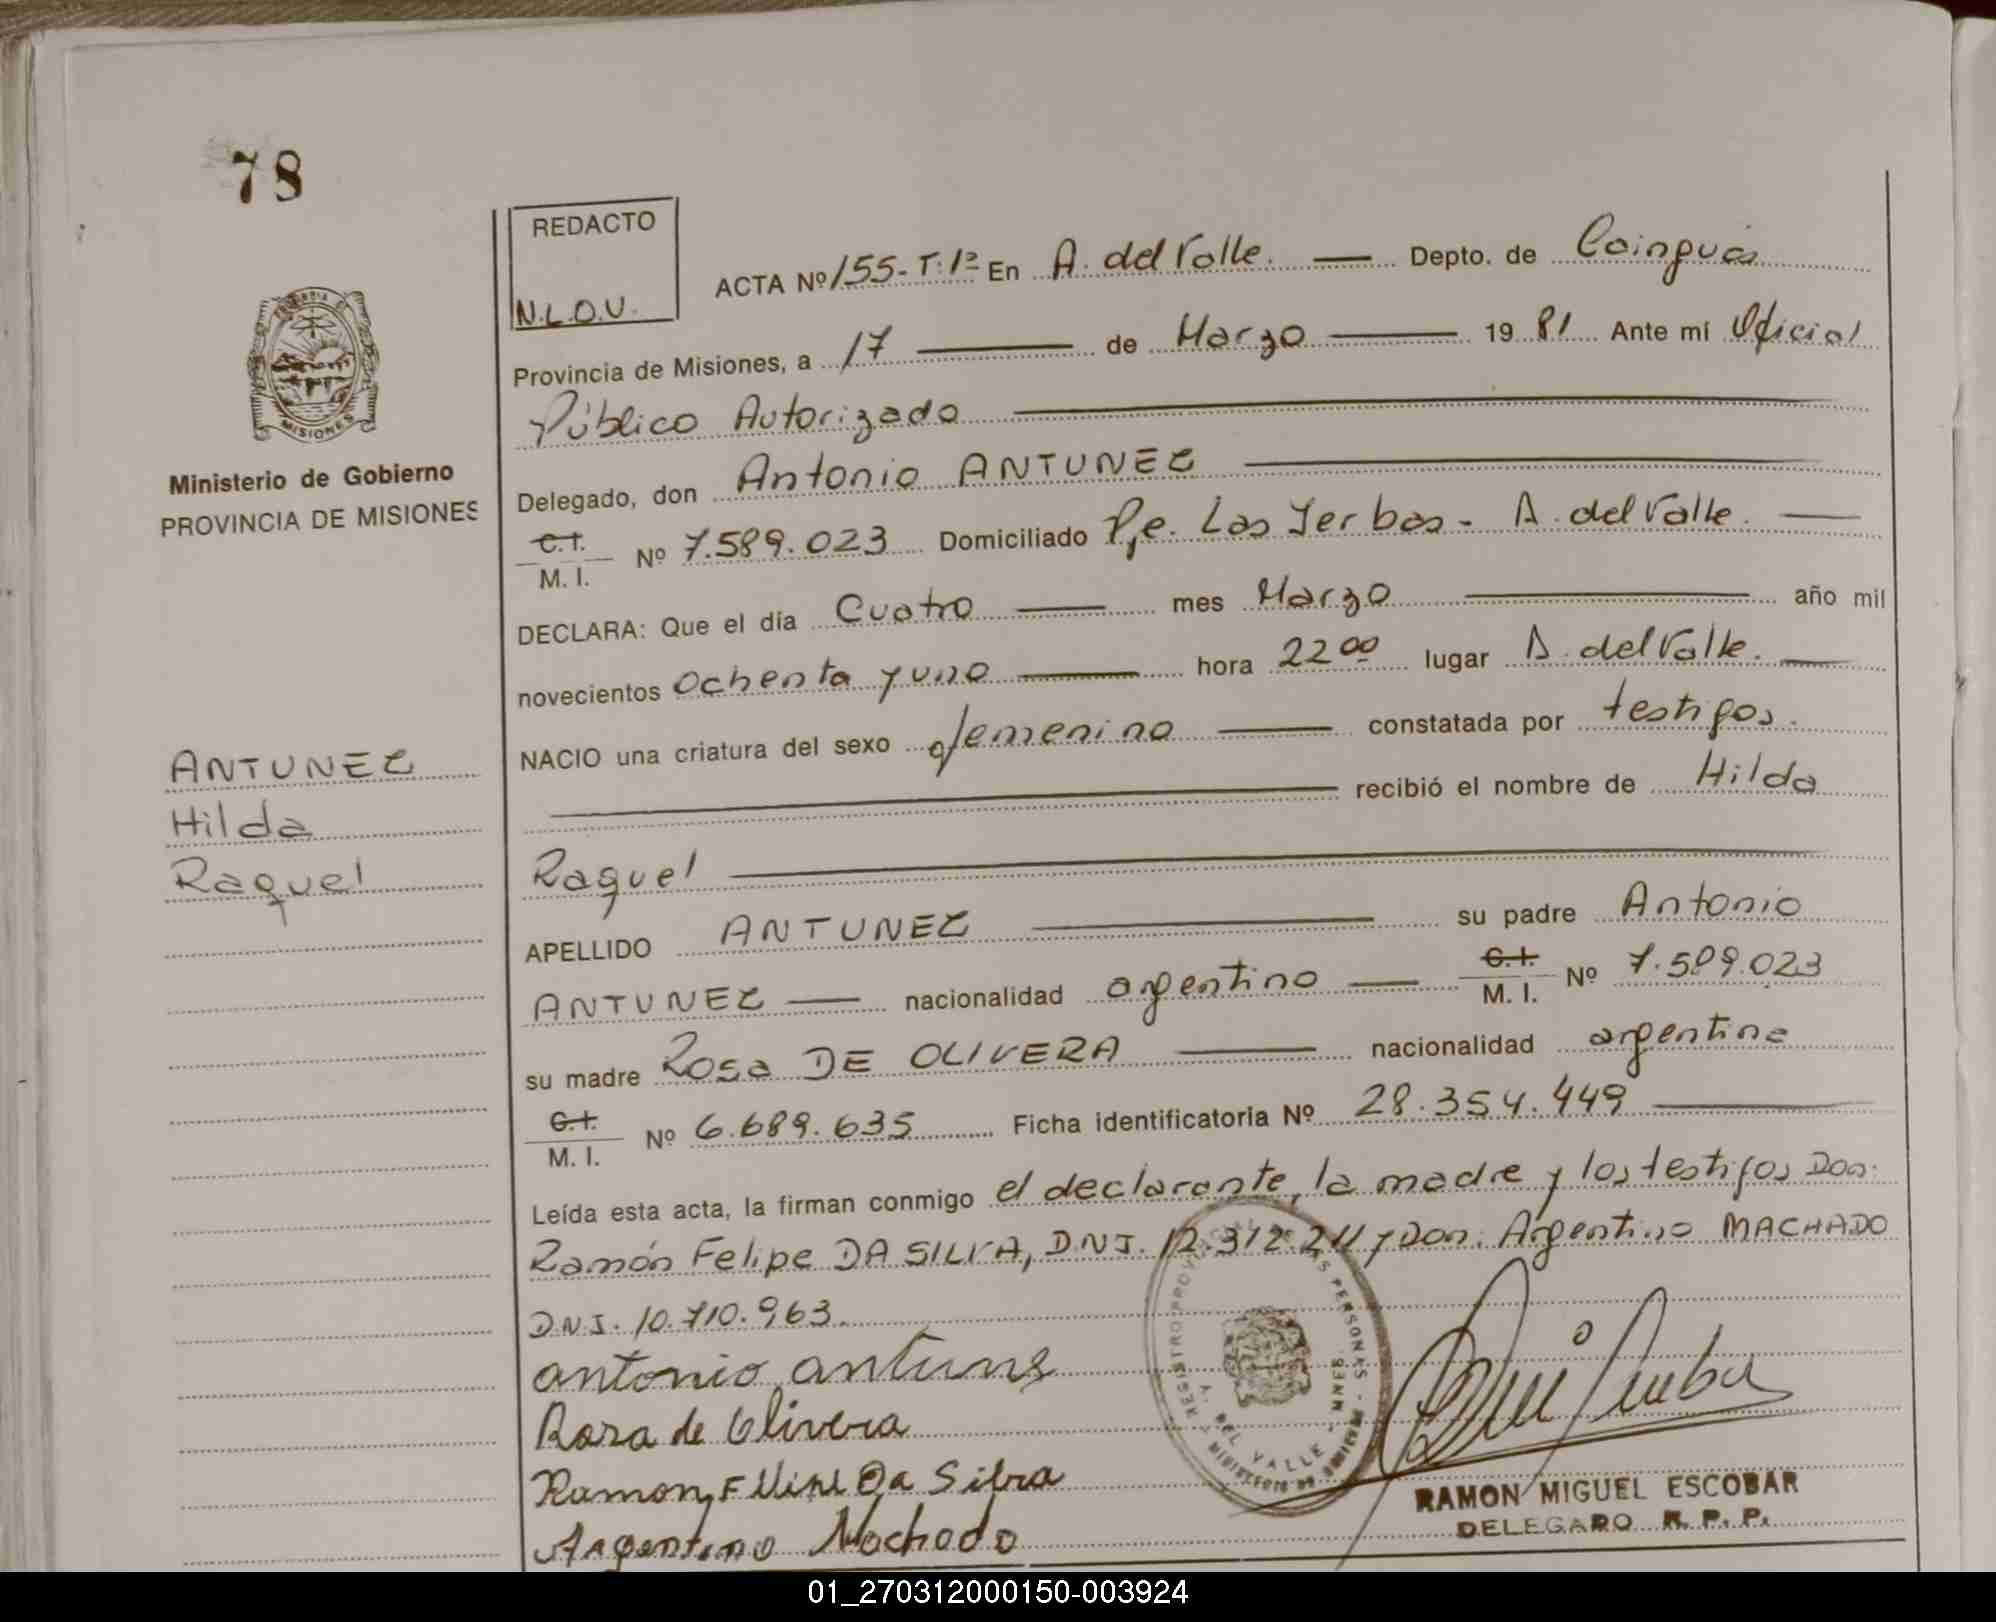 78
REDACTO
N.L.O.V.
ACTA Nº 155-T:1º En A. del Valle. — Depto. de Cainguás
Provincia de Misiones, a 17 — de Marzo — 1981 Ante mí Oficial
Público Autorizado —
Delegado, don Antonio ANTUNEZ —
C.I.
M. I. Nº 7.589.023 Domiciliado Pje. Las Yerbas - A. del Valle. —
DECLARA: Que el día Cuatro — mes Marzo — año mil
novecientos ochenta y uno — hora 22 00 lugar A. del Valle. —
NACIO una criatura del sexo femenino — constatada por testigos.
— recibió el nombre de Hilda
Raquel —
APELLIDO ANTUNEZ — su padre Antonio
ANTUNEZ — nacionalidad argentino — C.I.
M. I. Nº 7.589.023
su madre Rosa DE OLIVERA — nacionalidad argentina
C.I.
M. I. Nº 6.689.635 Ficha identificatoria Nº 28.354.449 —
Leída esta acta, la firman conmigo el declarante, la madre y los testigos Don.
Ramón Felipe DA SILVA, DNI. 12.312.211 y Don. Argentino MACHADO
DNI. 10.710.963.
antonio antuns
Rosa de Olivera
Ramon Da Silva
Argentino Machado
REGISTRO PROVINCIAL DE LAS PERSONAS - MNES.
A. DEL VALLE
RAMON MIGUEL ESCOBAR
DELEGADO R. P. P.
PROVINCIA DE MISIONES
Ministerio de Gobierno
PROVINCIA DE MISIONES
ANTUNEZ
Hilda
Raquel
01_270312000150-003924